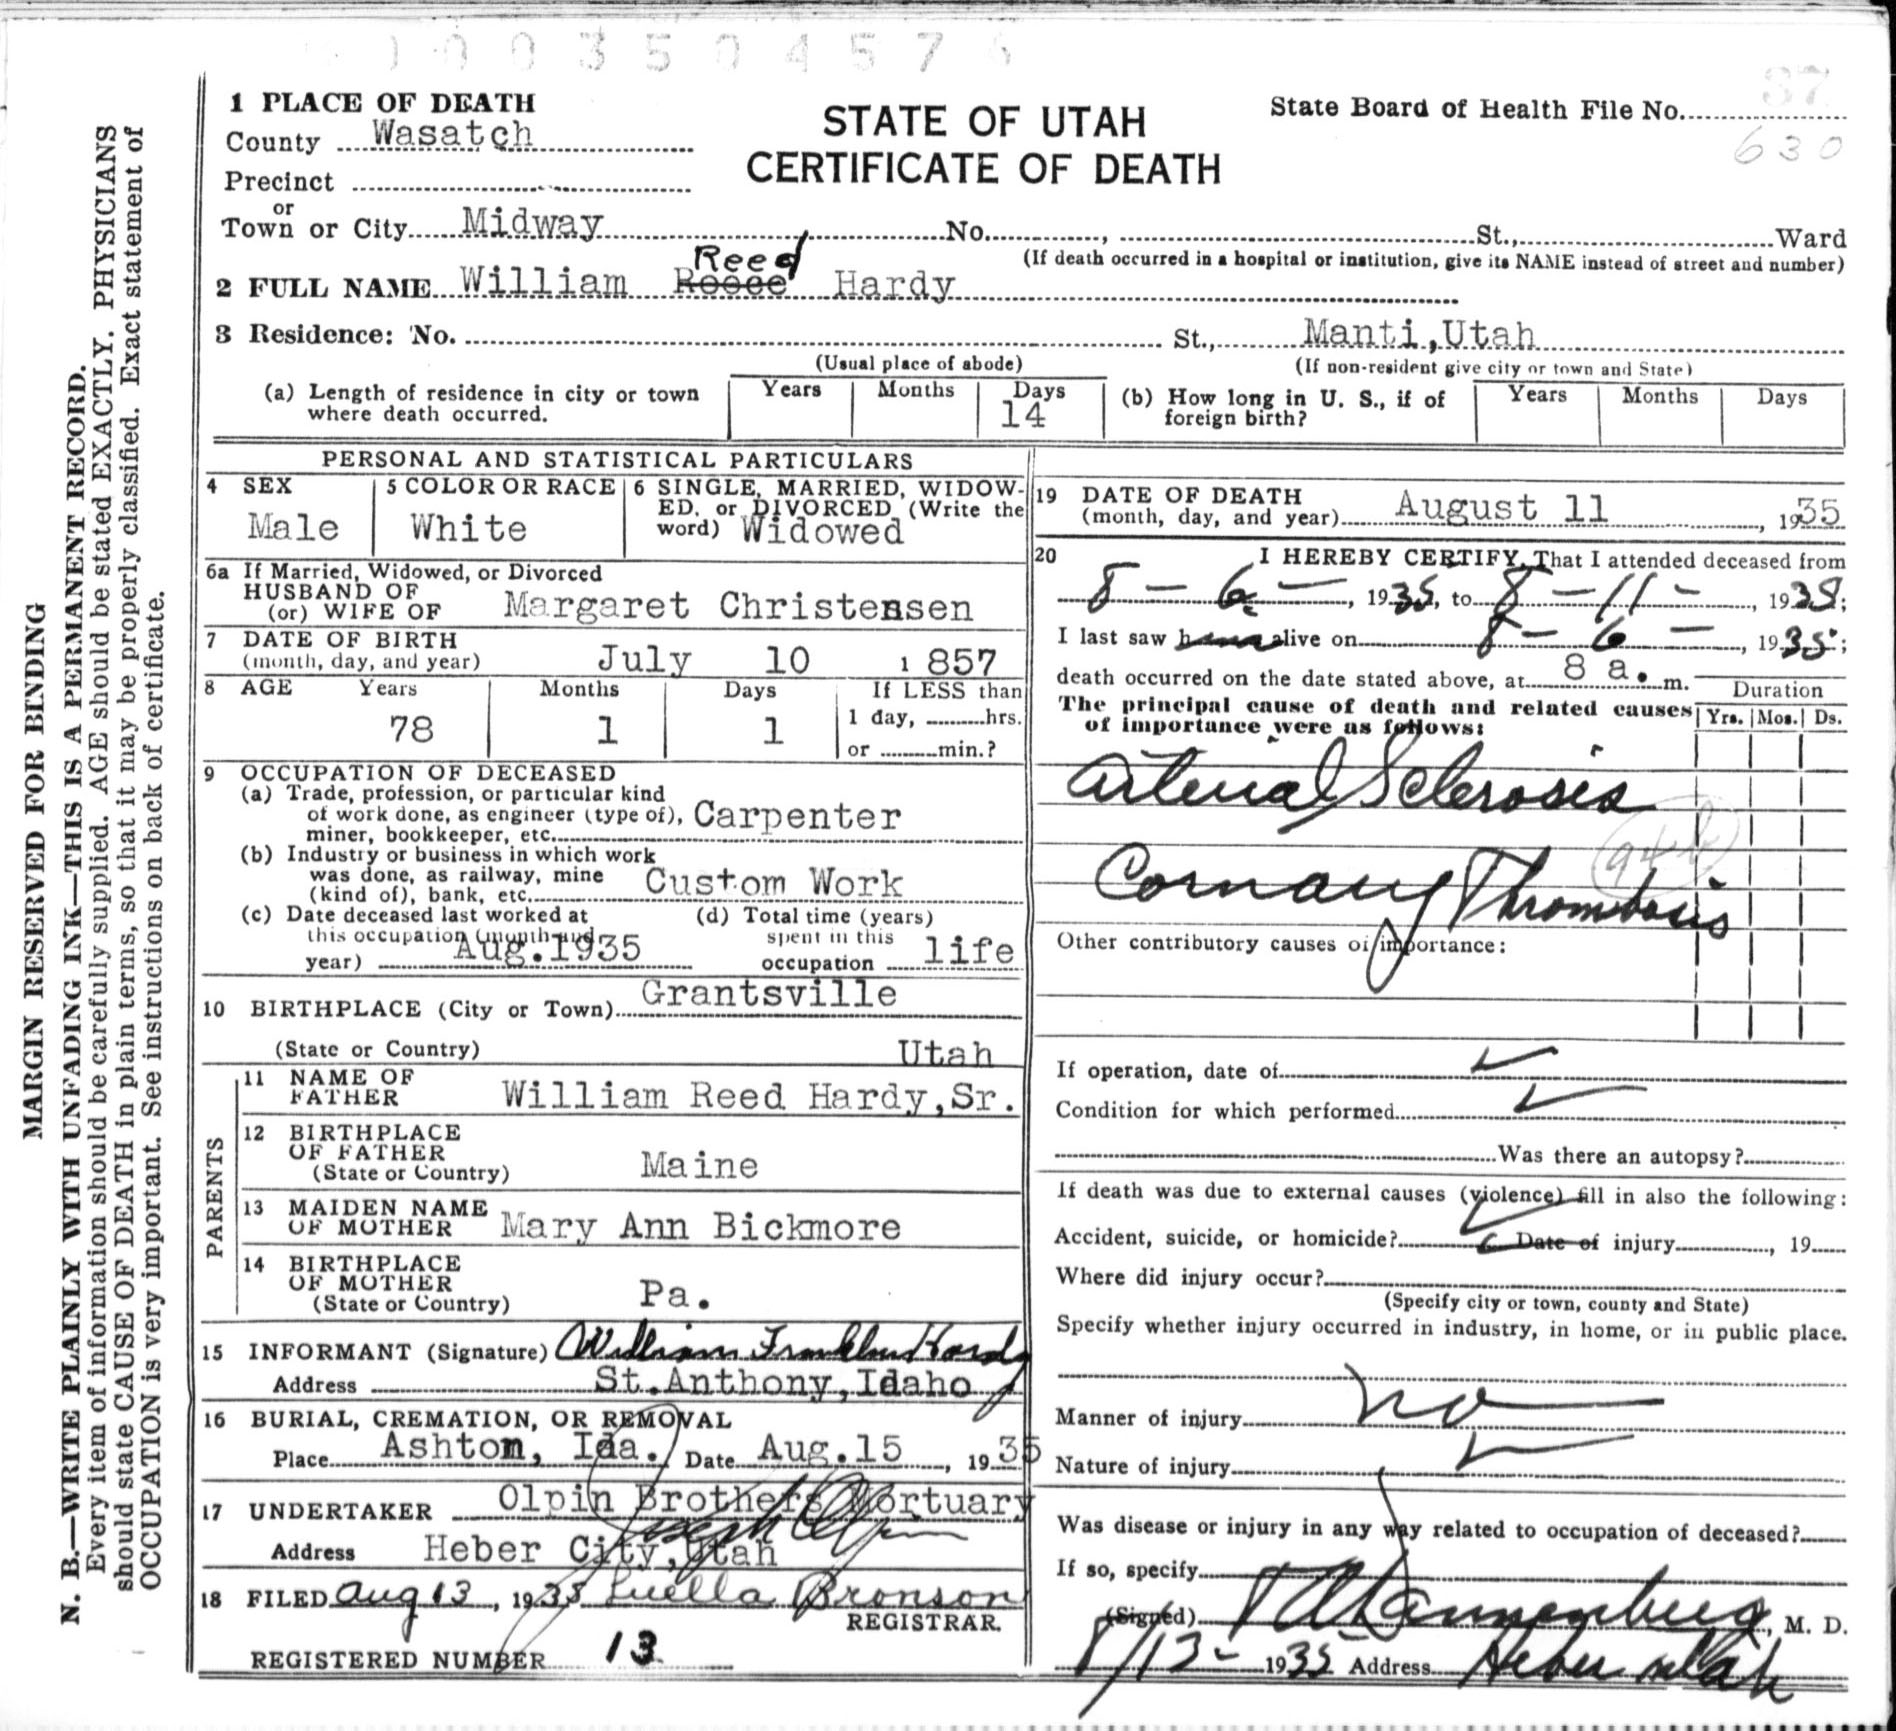 0003504576
1 PLACE OF DEATH
County Wasatch
Precinct
or
Town or City Midway No. , St., Ward
(If death occurred in a hospital or institution, give its NAME instead of street and number)
STATE OF UTAH
CERTIFICATE OF DEATH
State Board of Health File No. 87
630
Reed
2 FULL NAME William Reece Hardy
3 Residence: No. St., Manti, Utah
(Usual place of abode) (If non-resident give city or town and State)
(a) Length of residence in city or town where death occurred. Years Months Days 14
(b) How long in U. S., if of foreign birth? Years Months Days
PERSONAL AND STATISTICAL PARTICULARS
4 SEX Male
5 COLOR OR RACE White
6 SINGLE, MARRIED, WIDOW-
ED, or DIVORCED (Write the
word) Widowed
6a If Married, Widowed, or Divorced
HUSBAND OF
(or) WIFE OF Margaret Christensen
7 DATE OF BIRTH
(month, day, and year) July 10 1857
8 AGE Years Months Days If LESS than
78 1 1 1 day, hrs.
or min.?
9 OCCUPATION OF DECEASED
(a) Trade, profession, or particular kind
of work done, as engineer (type of), Carpenter
miner, bookkeeper, etc.
(b) Industry or business in which work
was done, as railway, mine Custom Work
(kind of), bank, etc.
(c) Date deceased last worked at
this occupation (month and
year) Aug. 1935
(d) Total time (years)
spent in this
occupation life
10 BIRTHPLACE (City or Town) Grantsville
(State or Country) Utah
PARENTS
11 NAME OF
FATHER William Reed Hardy, Sr.
12 BIRTHPLACE
OF FATHER
(State or Country) Maine
13 MAIDEN NAME
OF MOTHER Mary Ann Bickmore
14 BIRTHPLACE
OF MOTHER
(State or Country) Pa.
15 INFORMANT (Signature) William Franklin Hardy
Address St. Anthony, Idaho
16 BURIAL, CREMATION, OR REMOVAL
Place Ashton, Ida. Date Aug. 15, 1935
17 UNDERTAKER Olpin Brothers Mortuary
Joseph Olpin
Address Heber City, Utah
18 FILED Aug 13, 1935 Luella Bronson
REGISTRAR.
REGISTERED NUMBER 13
19 DATE OF DEATH
(month, day, and year) August 11, 1935
20 I HEREBY CERTIFY, That I attended deceased from
8 - 6 -, 1935, to 8 - 11 -, 1935;
I last saw him alive on 8 - 6 -, 1935;
death occurred on the date stated above, at 8 a. m.
Duration
The principal cause of death and related causes
of importance were as follows: Yrs. Mos. Ds.
Arterial Sclerosis
94b
Cornary Thrombosis
Other contributory causes of importance:
If operation, date of
Condition for which performed
Was there an autopsy?
If death was due to external causes (violence) fill in also the following:
Accident, suicide, or homicide? Date of injury , 19
Where did injury occur?
(Specify city or town, county and State)
Specify whether injury occurred in industry, in home, or in public place.
Manner of injury no
Nature of injury
Was disease or injury in any way related to occupation of deceased?
If so, specify
(Signed) Dannenberg, M. D.
8/13 - 1935 Address Heber Utah
MARGIN RESERVED FOR BINDING
N. B.—WRITE PLAINLY WITH UNFADING INK—THIS IS A PERMANENT RECORD.
Every item of information should be carefully supplied. AGE should be stated EXACTLY. PHYSICIANS
should state CAUSE OF DEATH in plain terms, so that it may be properly classified. Exact statement of
OCCUPATION is very important. See instructions on back of certificate.